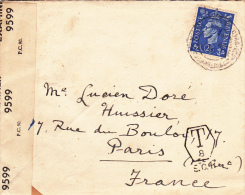 9599
P.C.90.
9599
9599
Mr. Lucien Doré
Huissier
17, Rue du Bouloi 17.
Paris
France
T